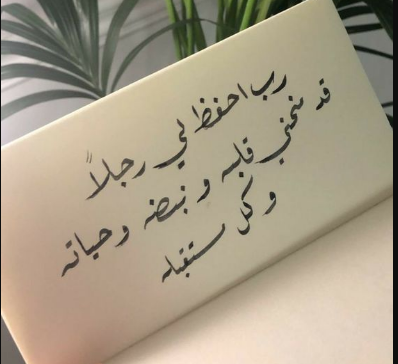 رب احفظ لي رجلاً
قد منحني قلبه و نبضه وحياته
و كل مستقبله